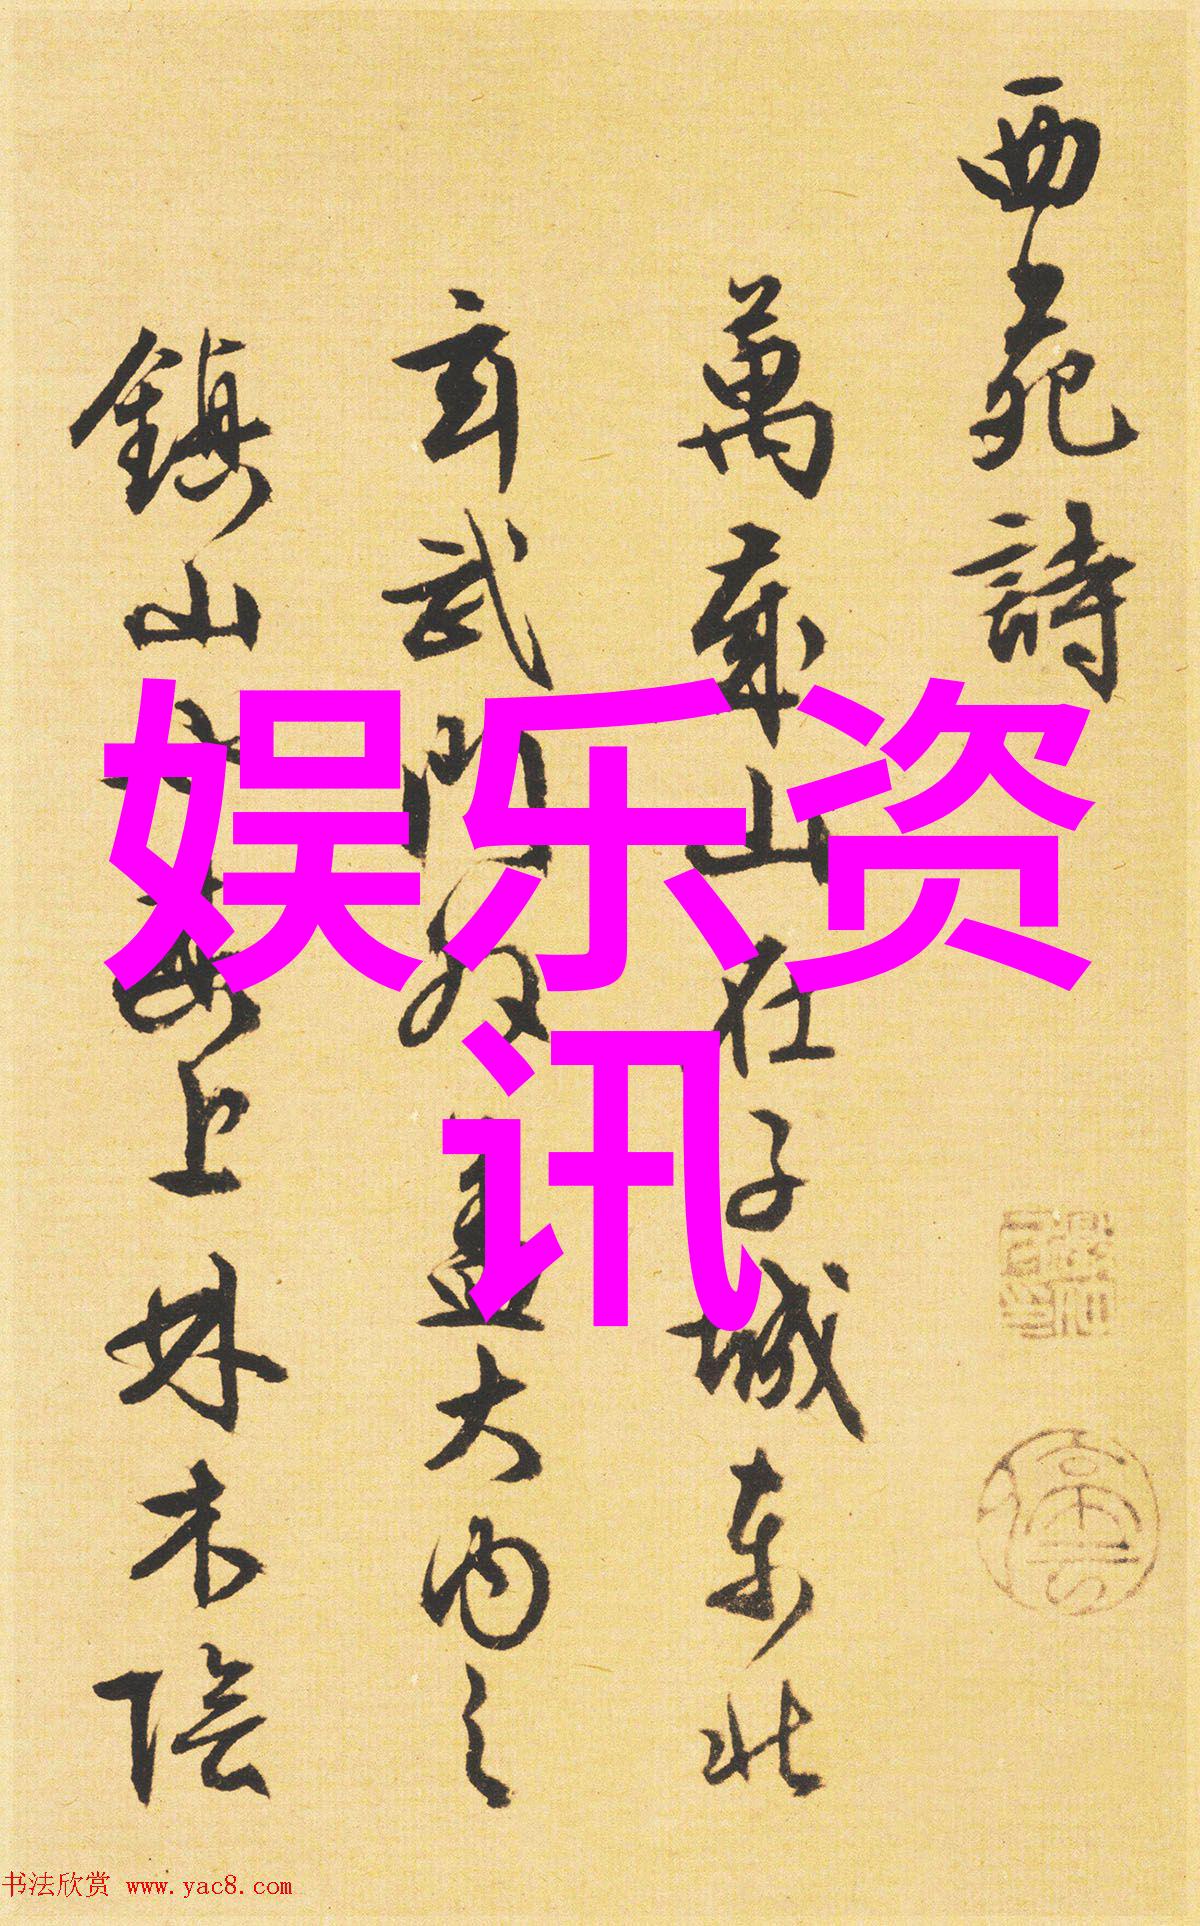 西苑詩
萬歲山在子城東北
玄武門外蓋大內之
鎮山上林木陰
娱乐资
讯
书法欣赏 www.yac8.com